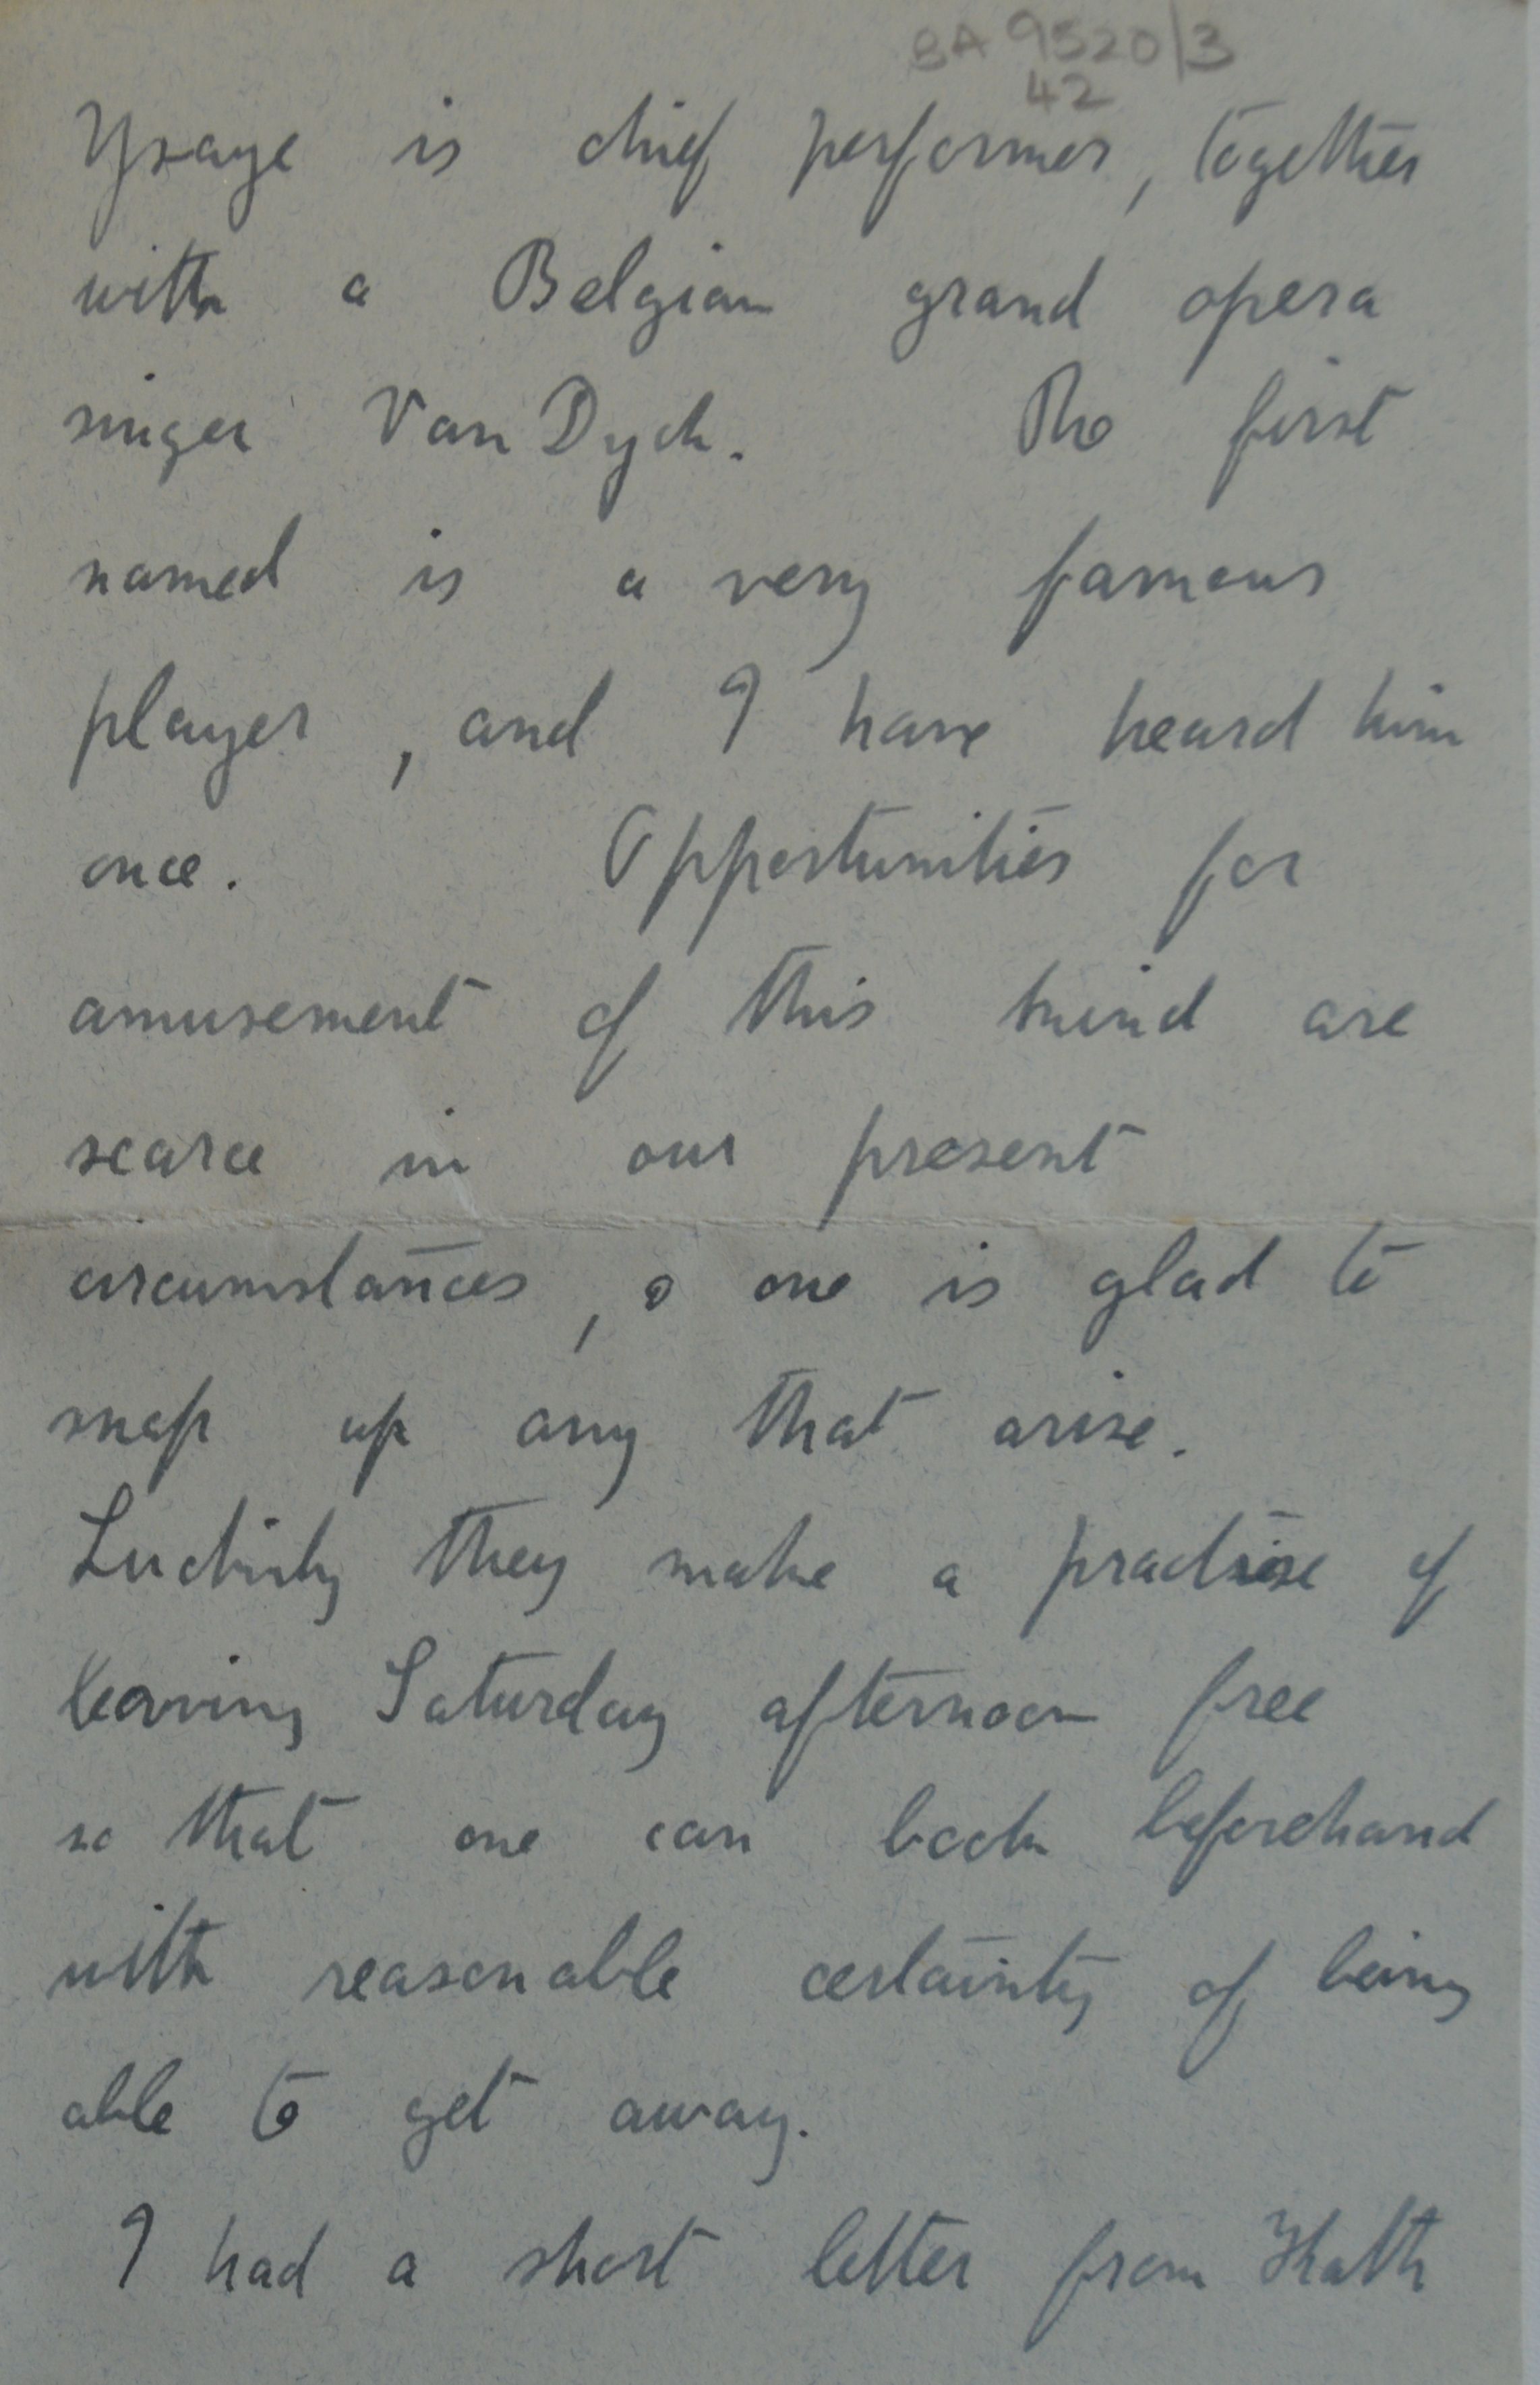 BA 9520/3
42
Ysaye is chief performer, together
with a Belgian grand opera
singer Van Dyck. The first
named is a very famous
player, and I have heard him
once. Opportunities for
amusement of this kind are
scarce in our present
circumstances, & one is glad to
snap up any that arise.
Luckily they make a practise of
leaving Saturday afternoon free
so that one can book beforehand
with reasonable certainty of being
able to get away.
I had a short letter from Kath